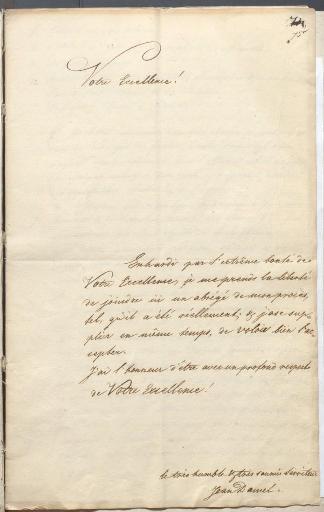 75
Votre Excellence!
Enhardi par l'extrême bonté de
Votre Excellence, je me prends la liberté
de joindre ici un abrégé de mon procès,
tel, qu'il a été réellement, & j'ose sup
plier en même temps, de voloir bien l'ac
cepter.
J'ai l'honneur d'être avec un profond respect
de Votre Excellence!
le très humble & très soumis Serviteur
Jean Daniel.